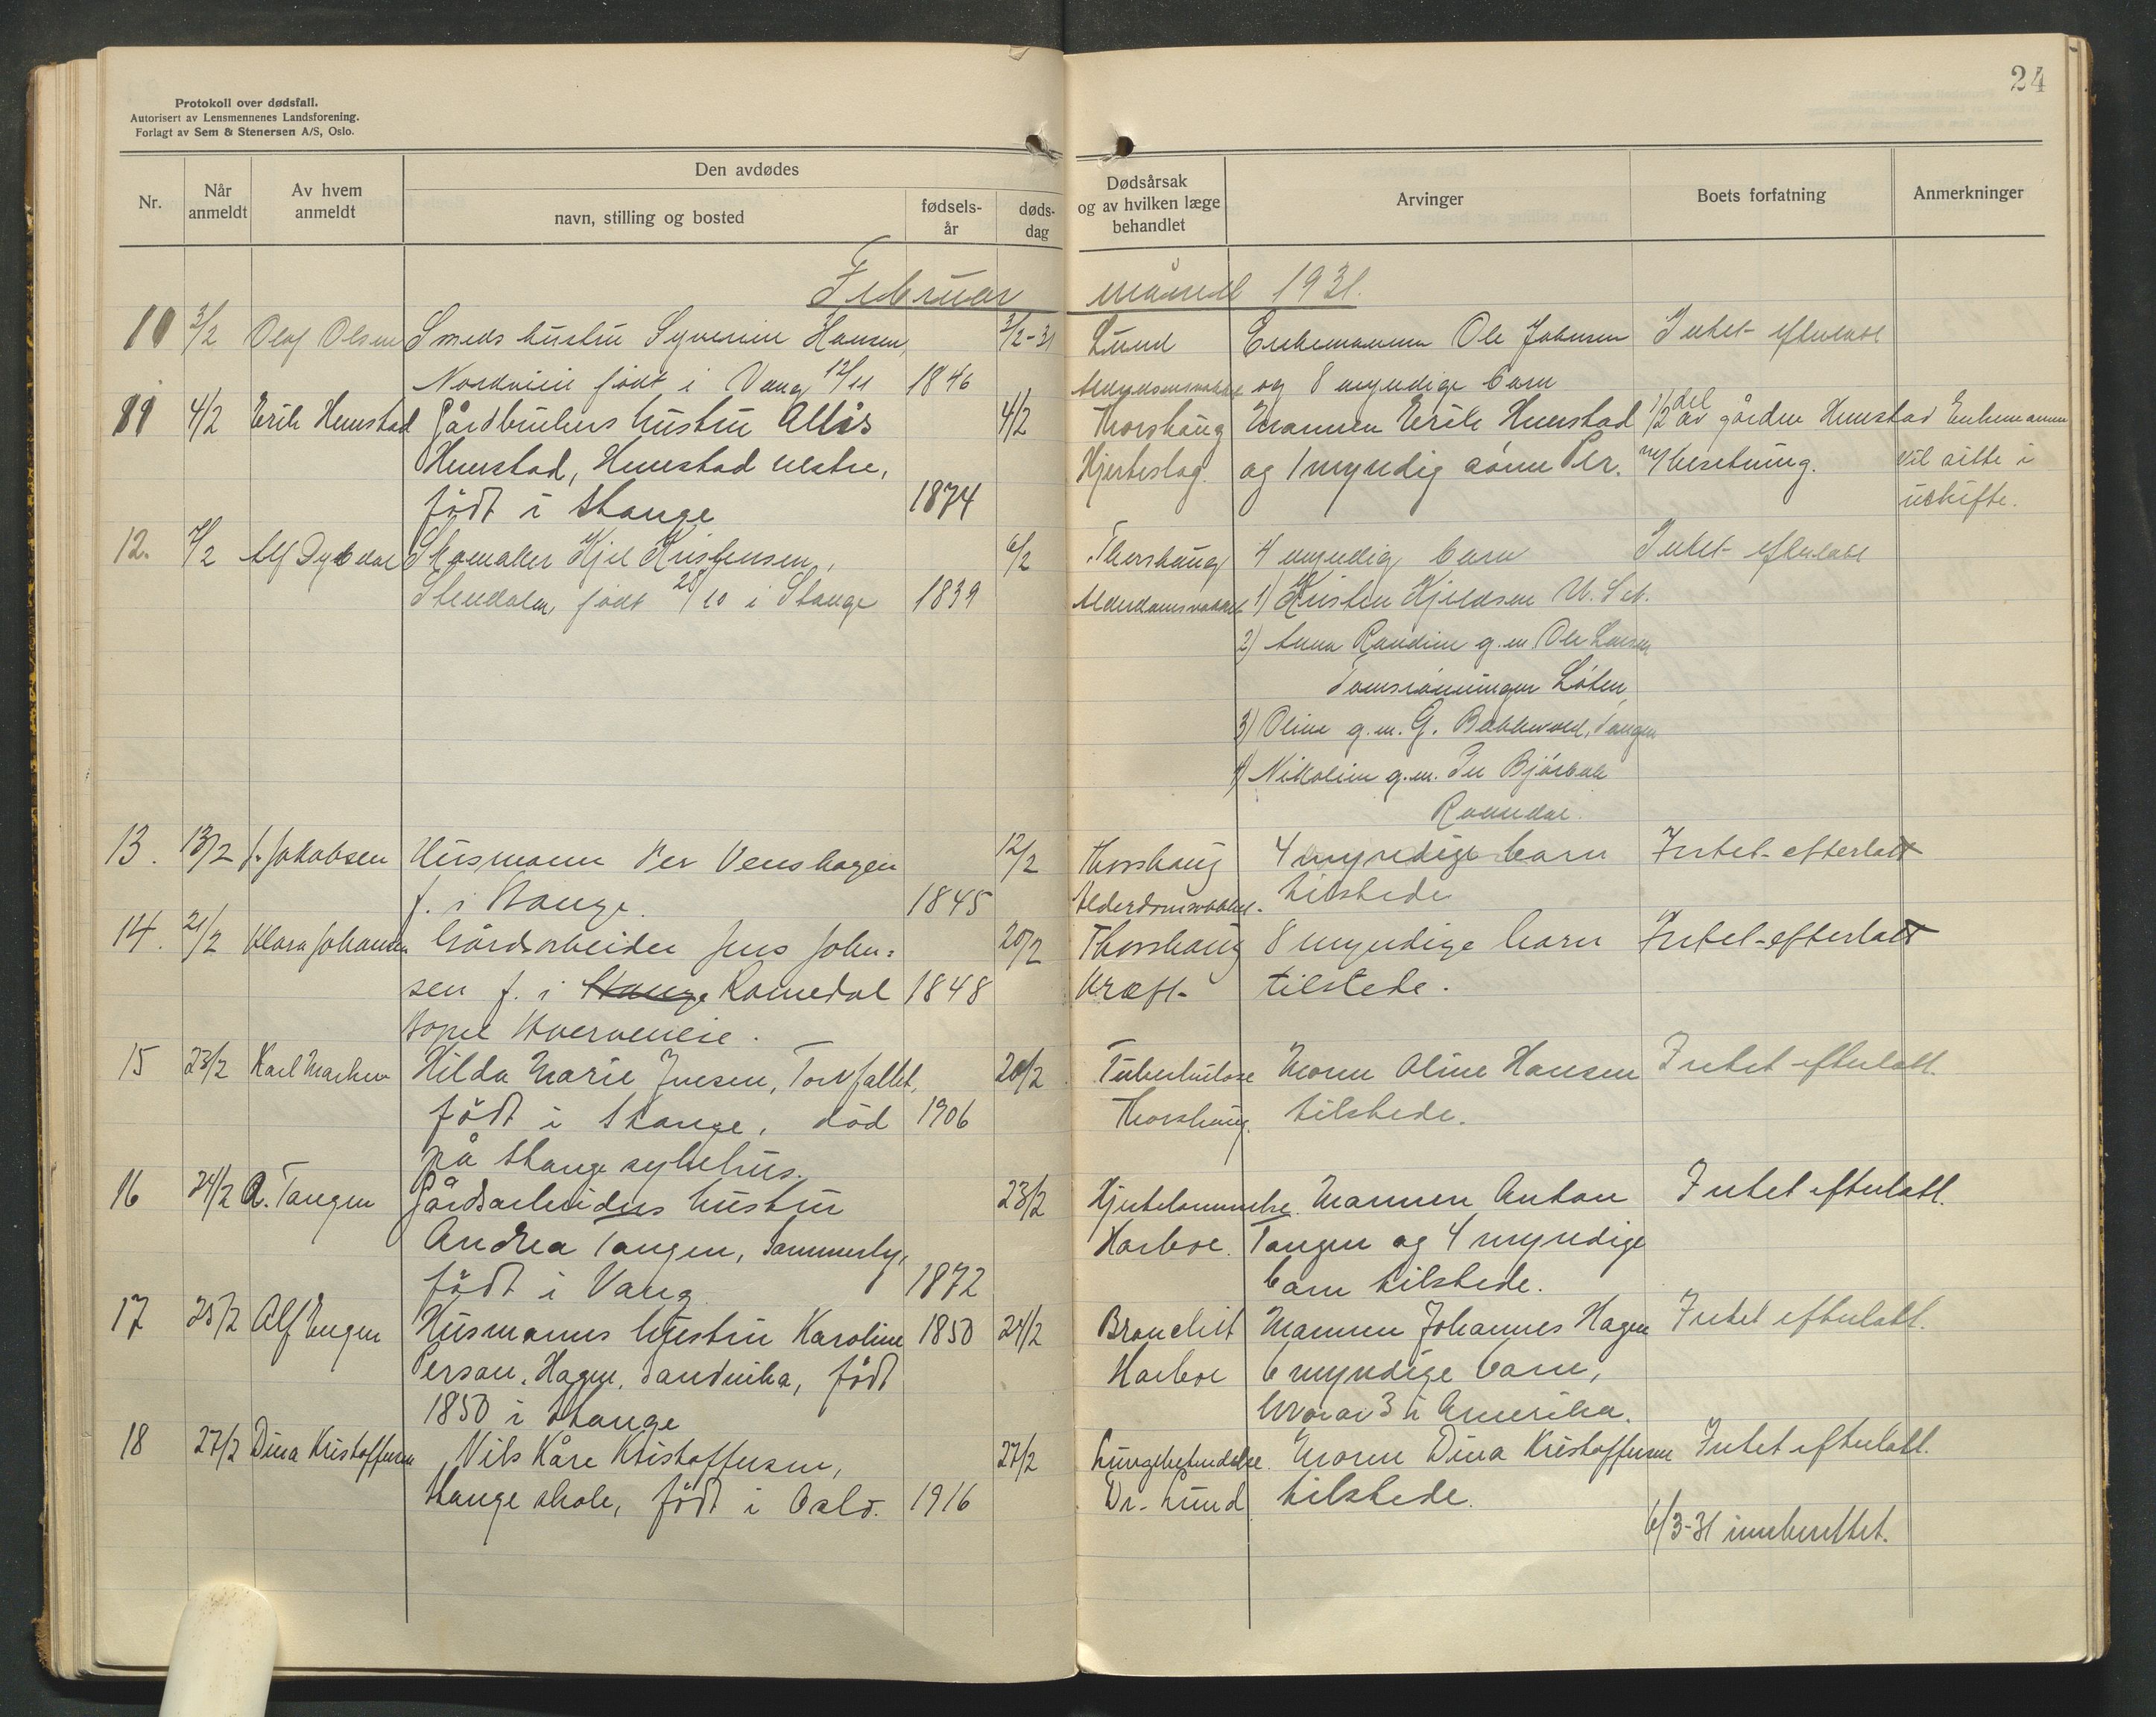 24
Protokoll over dødsfall.
Autorisert av Lensmennenes Landsforening.
Forlagt av Sem & Stenersen A/S, Oslo.
Nr.
Når anmeldt
Av hvem anmeldt
Den avdødes
navn, stilling og bosted
fødsels-år
døds-dag
Dødsårsak og av hvilken læge behandlet
Arvinger
Boets forfatning
Anmerkninger
Februar måned 1931.
10 3/2 Olaf Olsen Smeds hustru Syverine Hansen, 3/2-31 Lund Enkemannen Ole Johnsen Intet efterlatt
født i Vang 12/11 1846 Alderdomssvakhet og 8 myndige barn
11 4/2 Erik Hemstad Gårdbrukers hustru 4/2 Thorshaug Mannen Erik Hemstad 1/2 del av gården Hemstad Enkemannen
Hemstad, Hemstad vestre, Hjerteslag. og 1 myndig sønn Per. m/ besetning. vil sitte i
født i Stange 1874 uskifte.
12. 7/2 Alf Dybdal Skomaker Kjel Kristensen, 6/2 Thorshaug 4 myndig barn Intet efterlatt
født 28/10 i Stange 1839 Alderdomssvakhet 1) Kristen Kjeldsen U. St.
2) Anna Randine g.m. Ole Larsen
Løten,
3) Oline g.m. G. Tangen
4) Nikoline g.m. Per
Romedal.
13. 13/2 J. Jakobsen Husmann Per Venshagen 12/2 Thorshaug 4 myndige barn Intet efterlatt
f. i Stange. 1845 Alderdomssvakhet. tilstede
14. 21/2 Klara Johansen Gårdsarbeider Jens John= 20/2 Thorshaug 8 myndige barn Intet efterlatt
sen f. i Stange Romedal 1848 Kræft tilstede.
15 23/2 Karl Marken Hilda Marie Jensen, Torvfallet, 20/2 Tuberkulose Moren Oline Hansen Intet efterlatt.
født i Stange, død 1906 Thorshaug. tilstede.
på Stange sykehus.
16 24/2 A. Tangen Gårdsarbeiders hustru 23/2 Hjertelammelse. Mannen Anton Intet efterlatt.
Andrea Tangen, Sammerby, Harboe. Tangen og 4 myndige
født i Vang 1872 barn tilstede.
17 25/2 Alf Engen Husmanns hustru Karoline 1850 24/2 Bronchit Mannen Johannes Hagen Intet efterlatt.
Person, Hagen, Sandvika, født Harboe 6 myndige barn,
1850 i Stange hvorav 3 i Amerika.
18 27/2 Dina Kristoffersen Nils Kåre Kristoffersen, 27/2 Lungebetendelse. Moren Dina Kristoffersen Intet efterlatt.
Stange skole, født i Oslo. 1916 Dr. Lund tilstede.
6/3-31 innberettet.